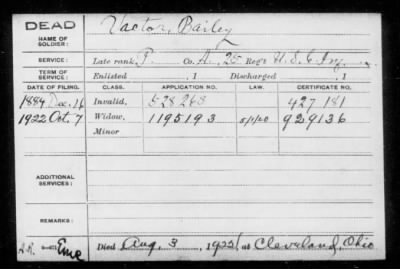 DEAD
NAME OF SOLDIER: Vactor, Bailey
SERVICE: Late rank, P. Co. A, 25 Reg't U.S.C. Inf.
TERM OF SERVICE: Enlisted , 1 Discharged , 1
DATE OF FILING. CLASS. APPLICATION NO. LAW. CERTIFICATE NO.
1884 Dec. 16 Invalid, 528268 427181
1922 Oct. 7 Widow, 1195193 5/1/20 929136
Minor
ADDITIONAL SERVICES:
REMARKS:
Died Aug. 3, 1922 at Cleveland, Ohio